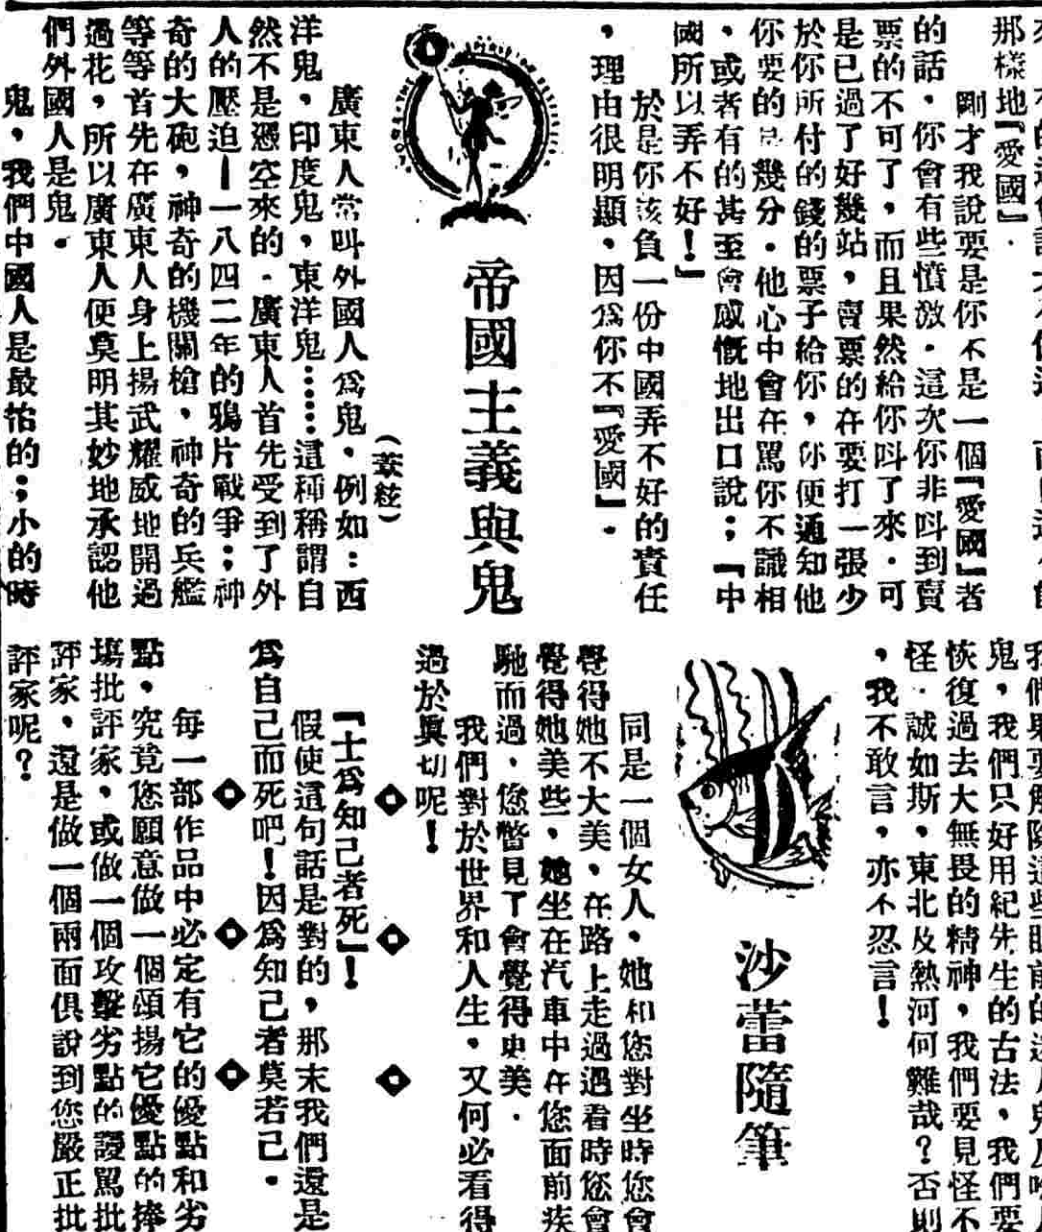 那樣地『愛國』.
剛才我說要是你不是一個『愛國』者
的話,你會有些憤激.這次你非叫到賣
票的不可了,而且果然給你叫了來.可
是已過了好幾站,賣票的在要打一張少
於你所付的錢的票子給你,你便通知他
你要的是幾分.他心中會在罵你不識相
,或者有的甚至會感慨地出口說;『中
國所以弄不好!』
於是你該負一份中國弄不好的責任
,理由很明顯,因為你不『愛國』.
帝國主義與鬼
廣東人常叫外國人為鬼,例如:西
洋鬼,印度鬼,東洋鬼……這種稱謂自
然不是憑空來的.廣東人首先受到了外
人的壓迫—一八四二年的鴉片戰爭;神
奇的大砲,神奇的機關槍,神奇的兵艦
等等首先在廣東人身上揚武耀威地開過
過花,所以廣東人便莫明其妙地承認他
們外國人是鬼.
鬼,我們中國人是最怕的;小的時
鬼,我們只好用紀先生的古法,我們要
恢復過去大無畏的精神,我們要見怪不
怪.誠如斯,東北及熱河何難哉?否則
,我不敢言,亦不忍言!
沙蕾隨筆
同是一個女人,她和您對坐時您會
覺得她不大美,在路上走過遇着時您會
覺得她美些,她坐在汽車中在您面前疾
馳而過,您瞥見了會覺得更美.
我們對於世界和人生,又何必看得
過於真切呢!
◇ ◇ ◇
『士為知己者死』!
假使這句話是對的,那末我們還是
為自己而死吧!因為知己者莫若己.
◇ ◇ ◇
每一部作品中必定有它的優點和劣
點,究竟您願意做一個頌揚它優點的捧
場批評家,或做一個攻擊劣點的謾罵批
評家,還是做一個兩面俱說到您嚴正批
評家呢?